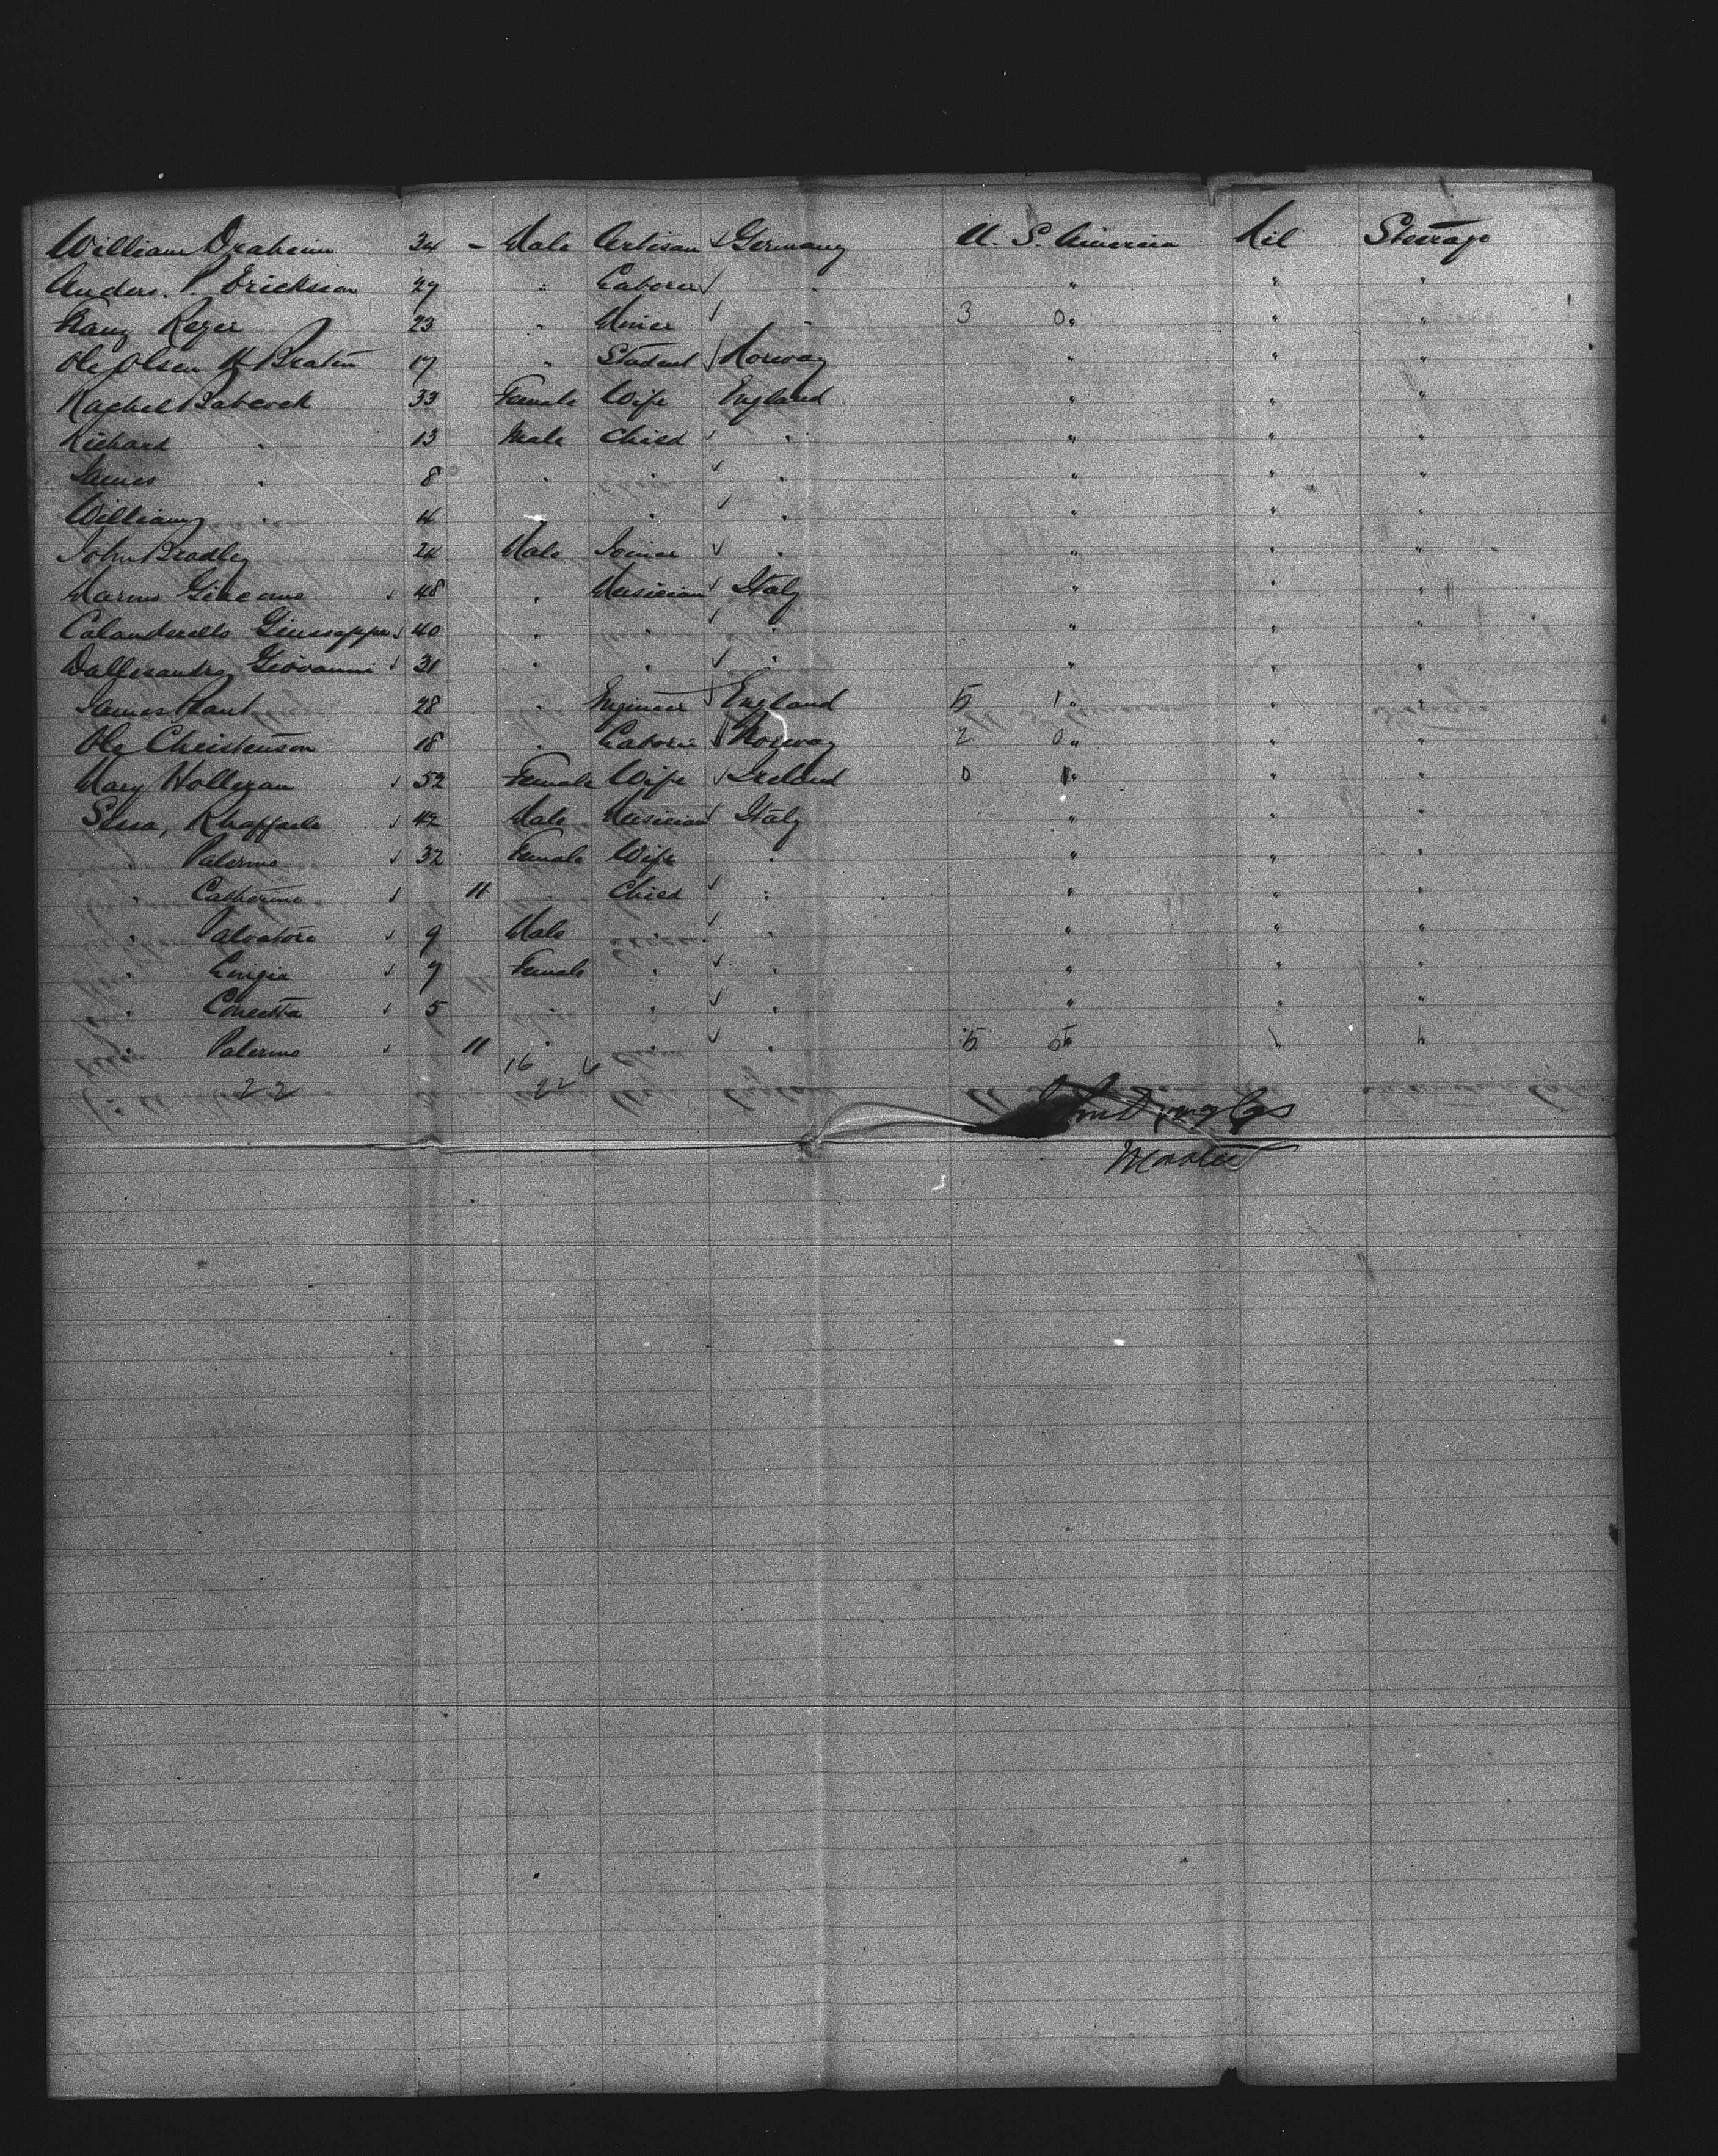 William Draheim 34 - Male Artisan ✓ Germany U. S. America Nil Steerage
Anders. P. Erickson 29 " Laborer ✓ " " " "
Franz Reger 23 " Miner ✓ " 3 0 " " "
Ole Olsen Braten 17 " Student ✓ Norway " " "
Rachel Babcock 33 Female Wife England " " "
Richard " 13 Male Child ✓ " " " "
James " 8 " " ✓ " " " "
William " 4 " " ✓ " " " "
John Bradley 24 Male Joiner ✓ " " " "
Marino Giacomo ✓ 48 " Musician ✓ Italy " " "
Calanderello Giuseppe ✓ 40 " " ✓ " " " "
Dallesandro Giovanni ✓ 31 " " ✓ " " " "
James Plant 28 " Engineer ✓ England 5 1 " " "
Ole Christenson 18 " Laborer ✓ Norway 2 0 " " "
Mary Hollegan ✓ 52 Female Wife ✓ Ireland 0 1 " " "
Sena, Rhaffaele ✓ 42 Male Musician ✓ Italy " " "
" Palermo ✓ 32 Female Wife " " " "
" Catherine ✓ 11 " Child ✓ " " " "
" Salvatore ✓ 9 Male " ✓ " " " "
" Luigia ✓ 7 Female " ✓ " " " "
" Concetta ✓ 5 " " ✓ " " " "
" Palermo ✓ 11 " " ✓ " 5 5 " " "
16 6
22 22
Douglas
Master